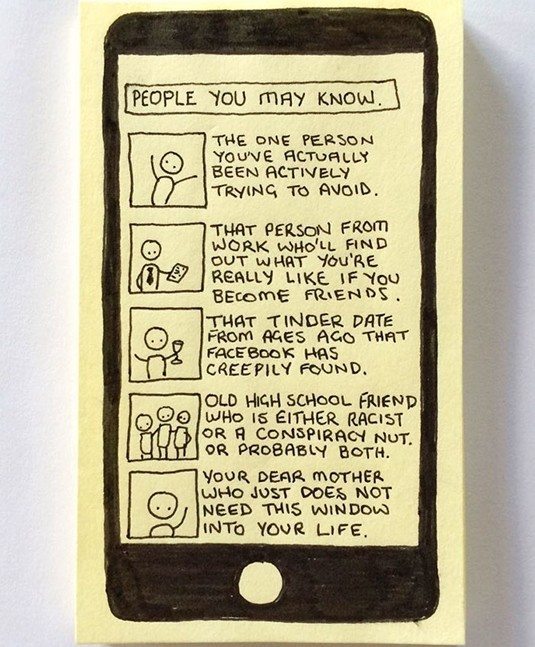 PEOPLE YOU MAY KNOW.
THE ONE PERSON
YOU'VE ACTUALLY
BEEN ACTIVELY
TRYING TO AVOID.
THAT PERSON FROM
WORK WHO'LL FIND
OUT WHAT YOU'RE
REALLY LIKE IF YOU
BECOME FRIENDS.
THAT TINDER DATE
FROM AGES AGO THAT
FACEBOOK HAS
CREEPILY FOUND.
OLD HIGH SCHOOL FRIEND
WHO IS EITHER RACIST
OR A CONSPIRACY NUT.
OR PROBABLY BOTH.
YOUR DEAR MOTHER
WHO JUST DOES NOT
NEED THIS WINDOW
INTO YOUR LIFE.